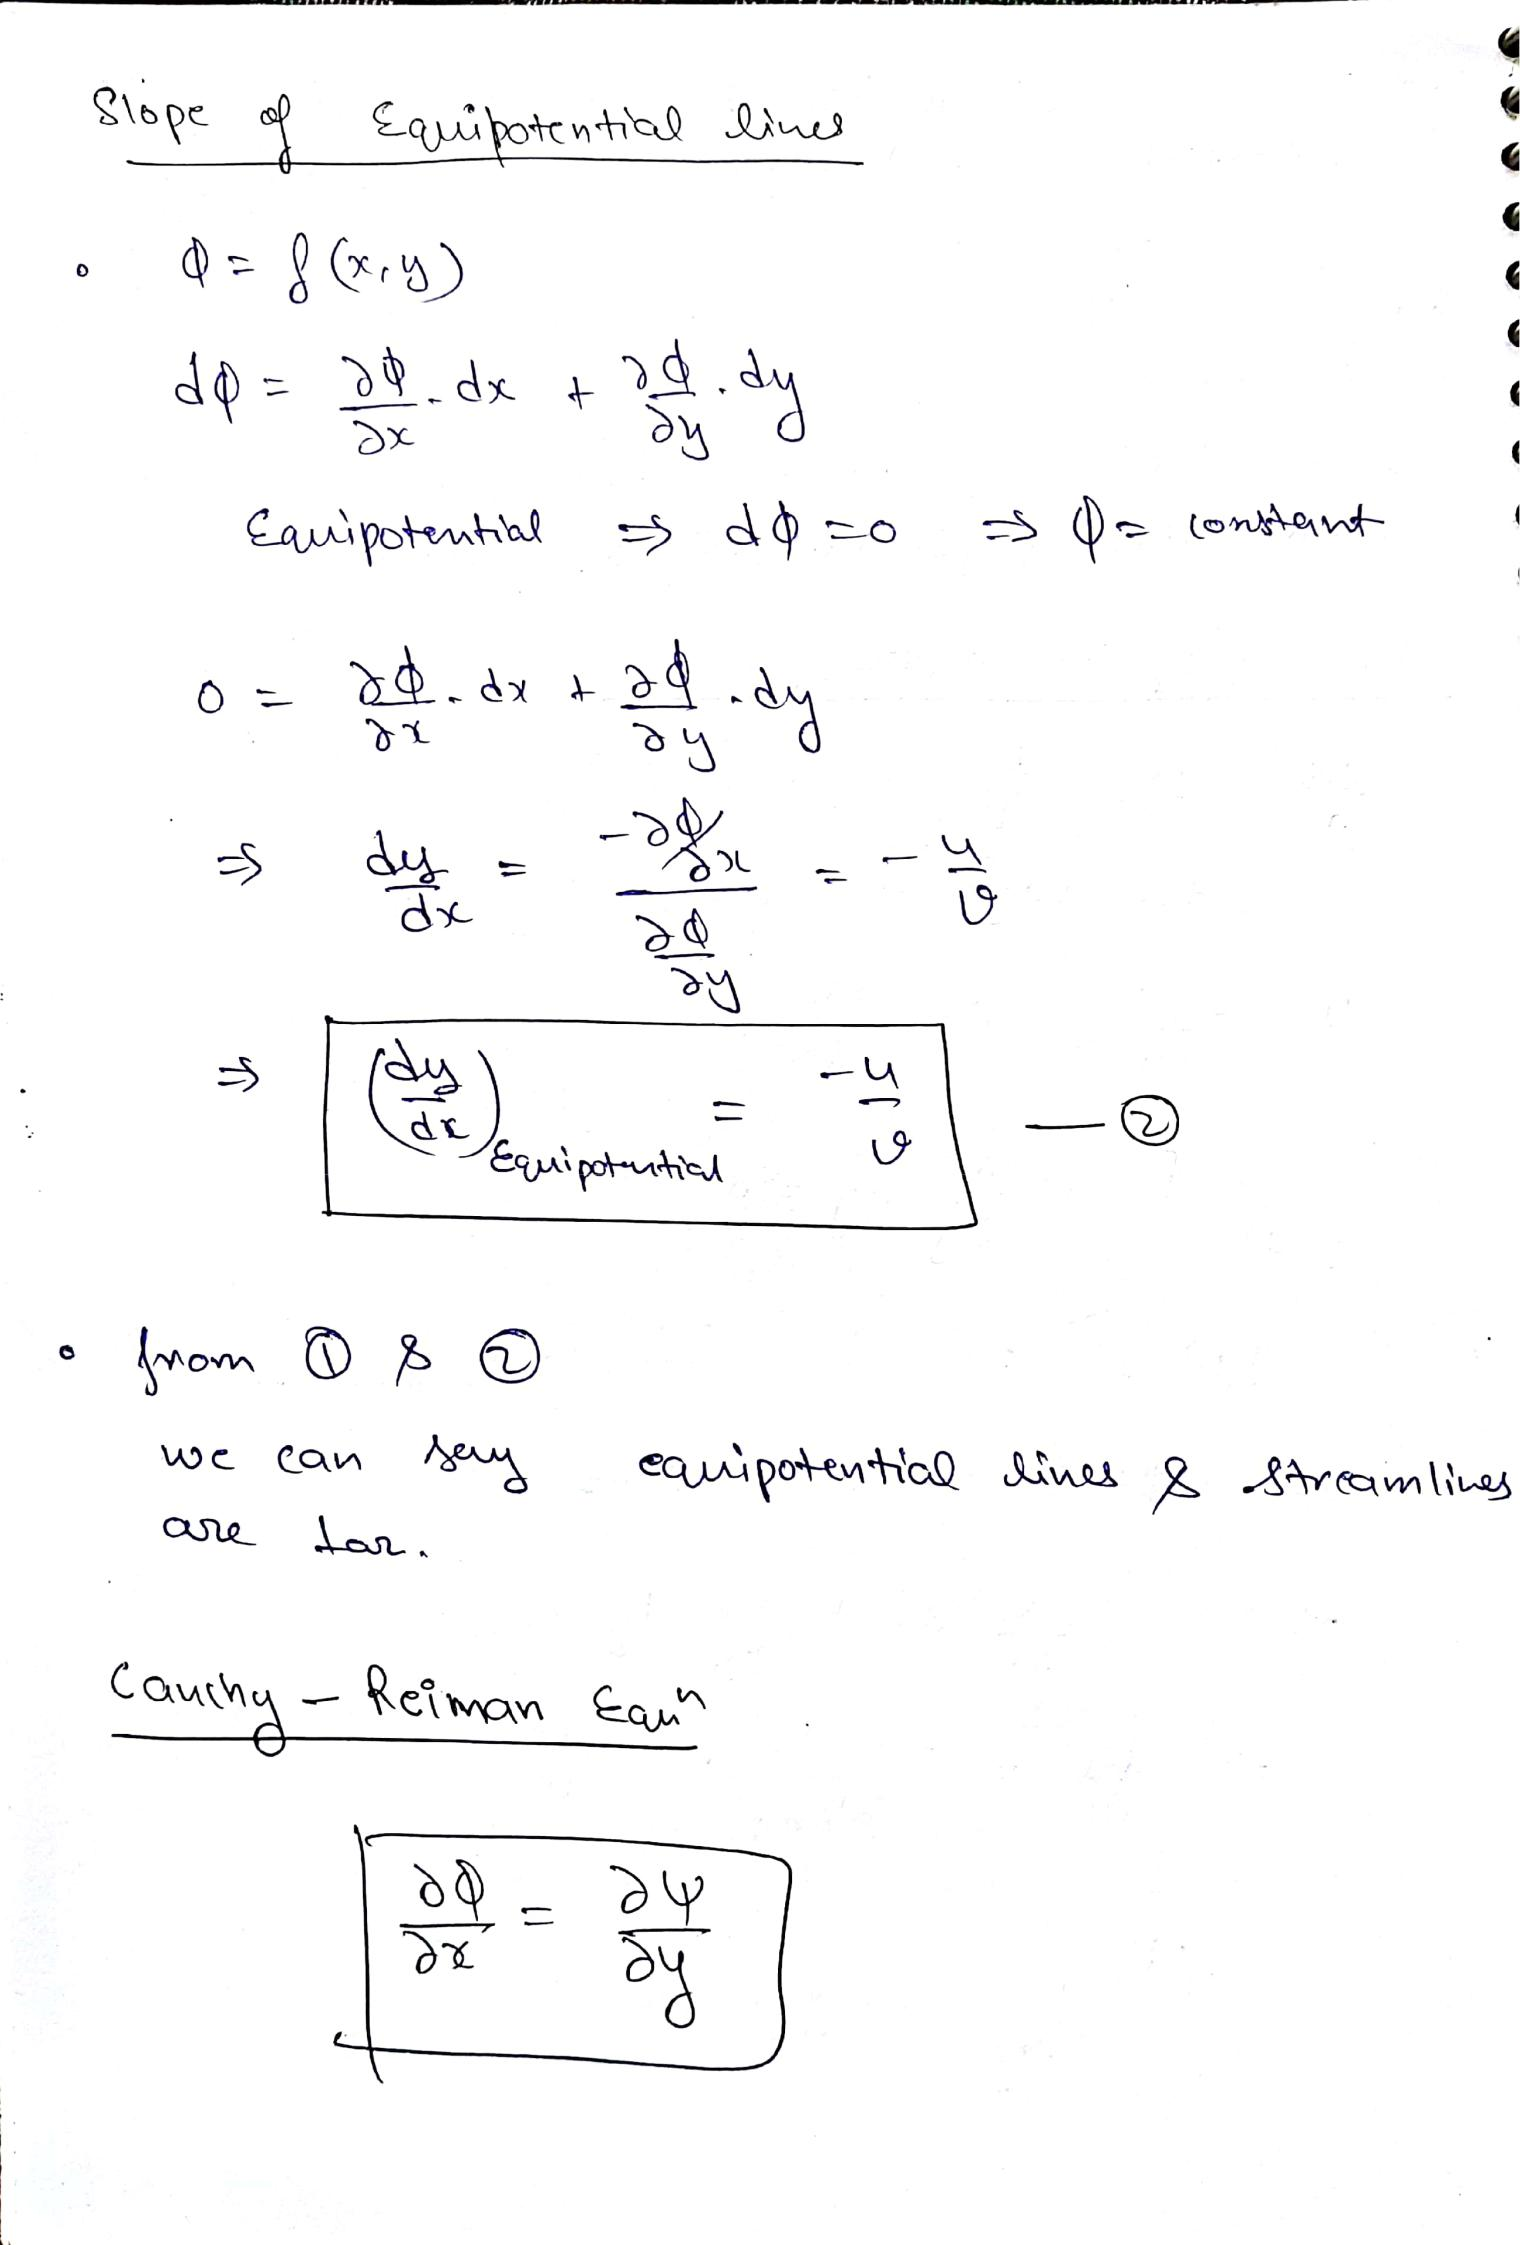 Slope of Equipotential lines
∘ ϕ = f(x,y)
dϕ = ∂ϕ/∂x . dx + ∂ϕ/∂y . dy
Equipotential ⇒ dϕ = 0 ⇒ ϕ = constant
0 = ∂ϕ/∂x . dx + ∂ϕ/∂y . dy
⇒ dy/dx = (-∂ϕ/∂x)/(∂ϕ/∂y) = - u/v
⇒ (dy/dx)Equipotential = -u/v — ②
∘ from ① & ②
we can say equipotential lines & streamlines
are ⊥ar.
Cauchy - Reiman Equⁿ
∂ϕ/∂x = ∂ψ/∂y